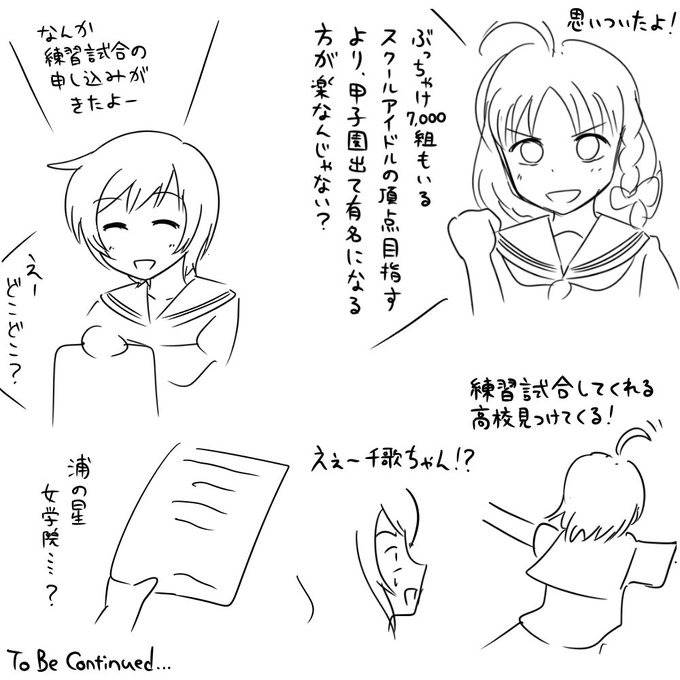 思いついたよ！
ぶっちゃけ7,000組もいる
スクールアイドルの頂点目指す
より、甲子園出て有名になる
方が楽なんじゃない？
練習試合してくれる
高校見つけてくる！
ええ〜千歌ちゃん！？
なんか
練習試合の
申し込みが
きたよー
えー
どこどこ？
浦の星
女学院…？
To Be Continued...